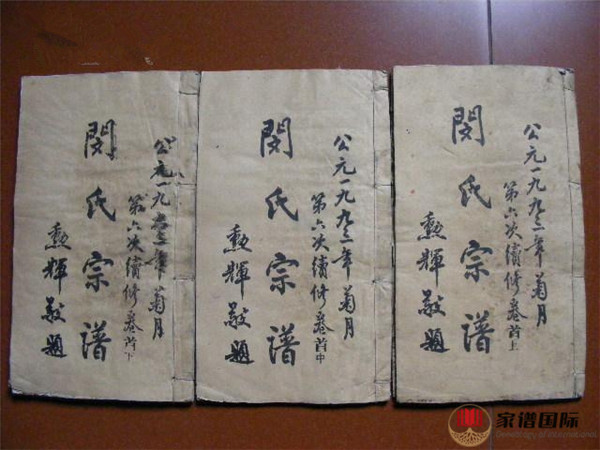 公元一九九三年菊月
第六次續修卷首上
閔氏宗谱
勲輝敬題
公元一九九三年菊月
第六次續修卷首中
閔氏宗谱
勲輝敬題
公元一九九三年菊月
第六次續修卷首下
閔氏宗谱
勲輝敬題
家谱国际
Genealogy of International